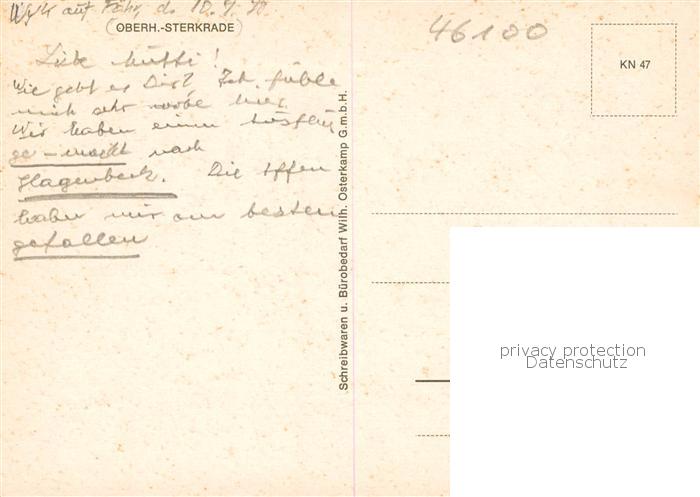 Wyk auf Föhr, d. 10.9.70
OBERH.-STERKRADE
Liebe Mutti!
Wie geht es Dir? Ich fühle
mich sehr wohl hier.
Wir haben einen Ausflug
ge-macht nach
Hagenbeck. Die Affen
haben mir am besten
gefallen
Schreibwaren u. Bürobedarf Wilh. Osterkamp G.m.b.H.
46100
KN 47
privacy protection
Datenschutz